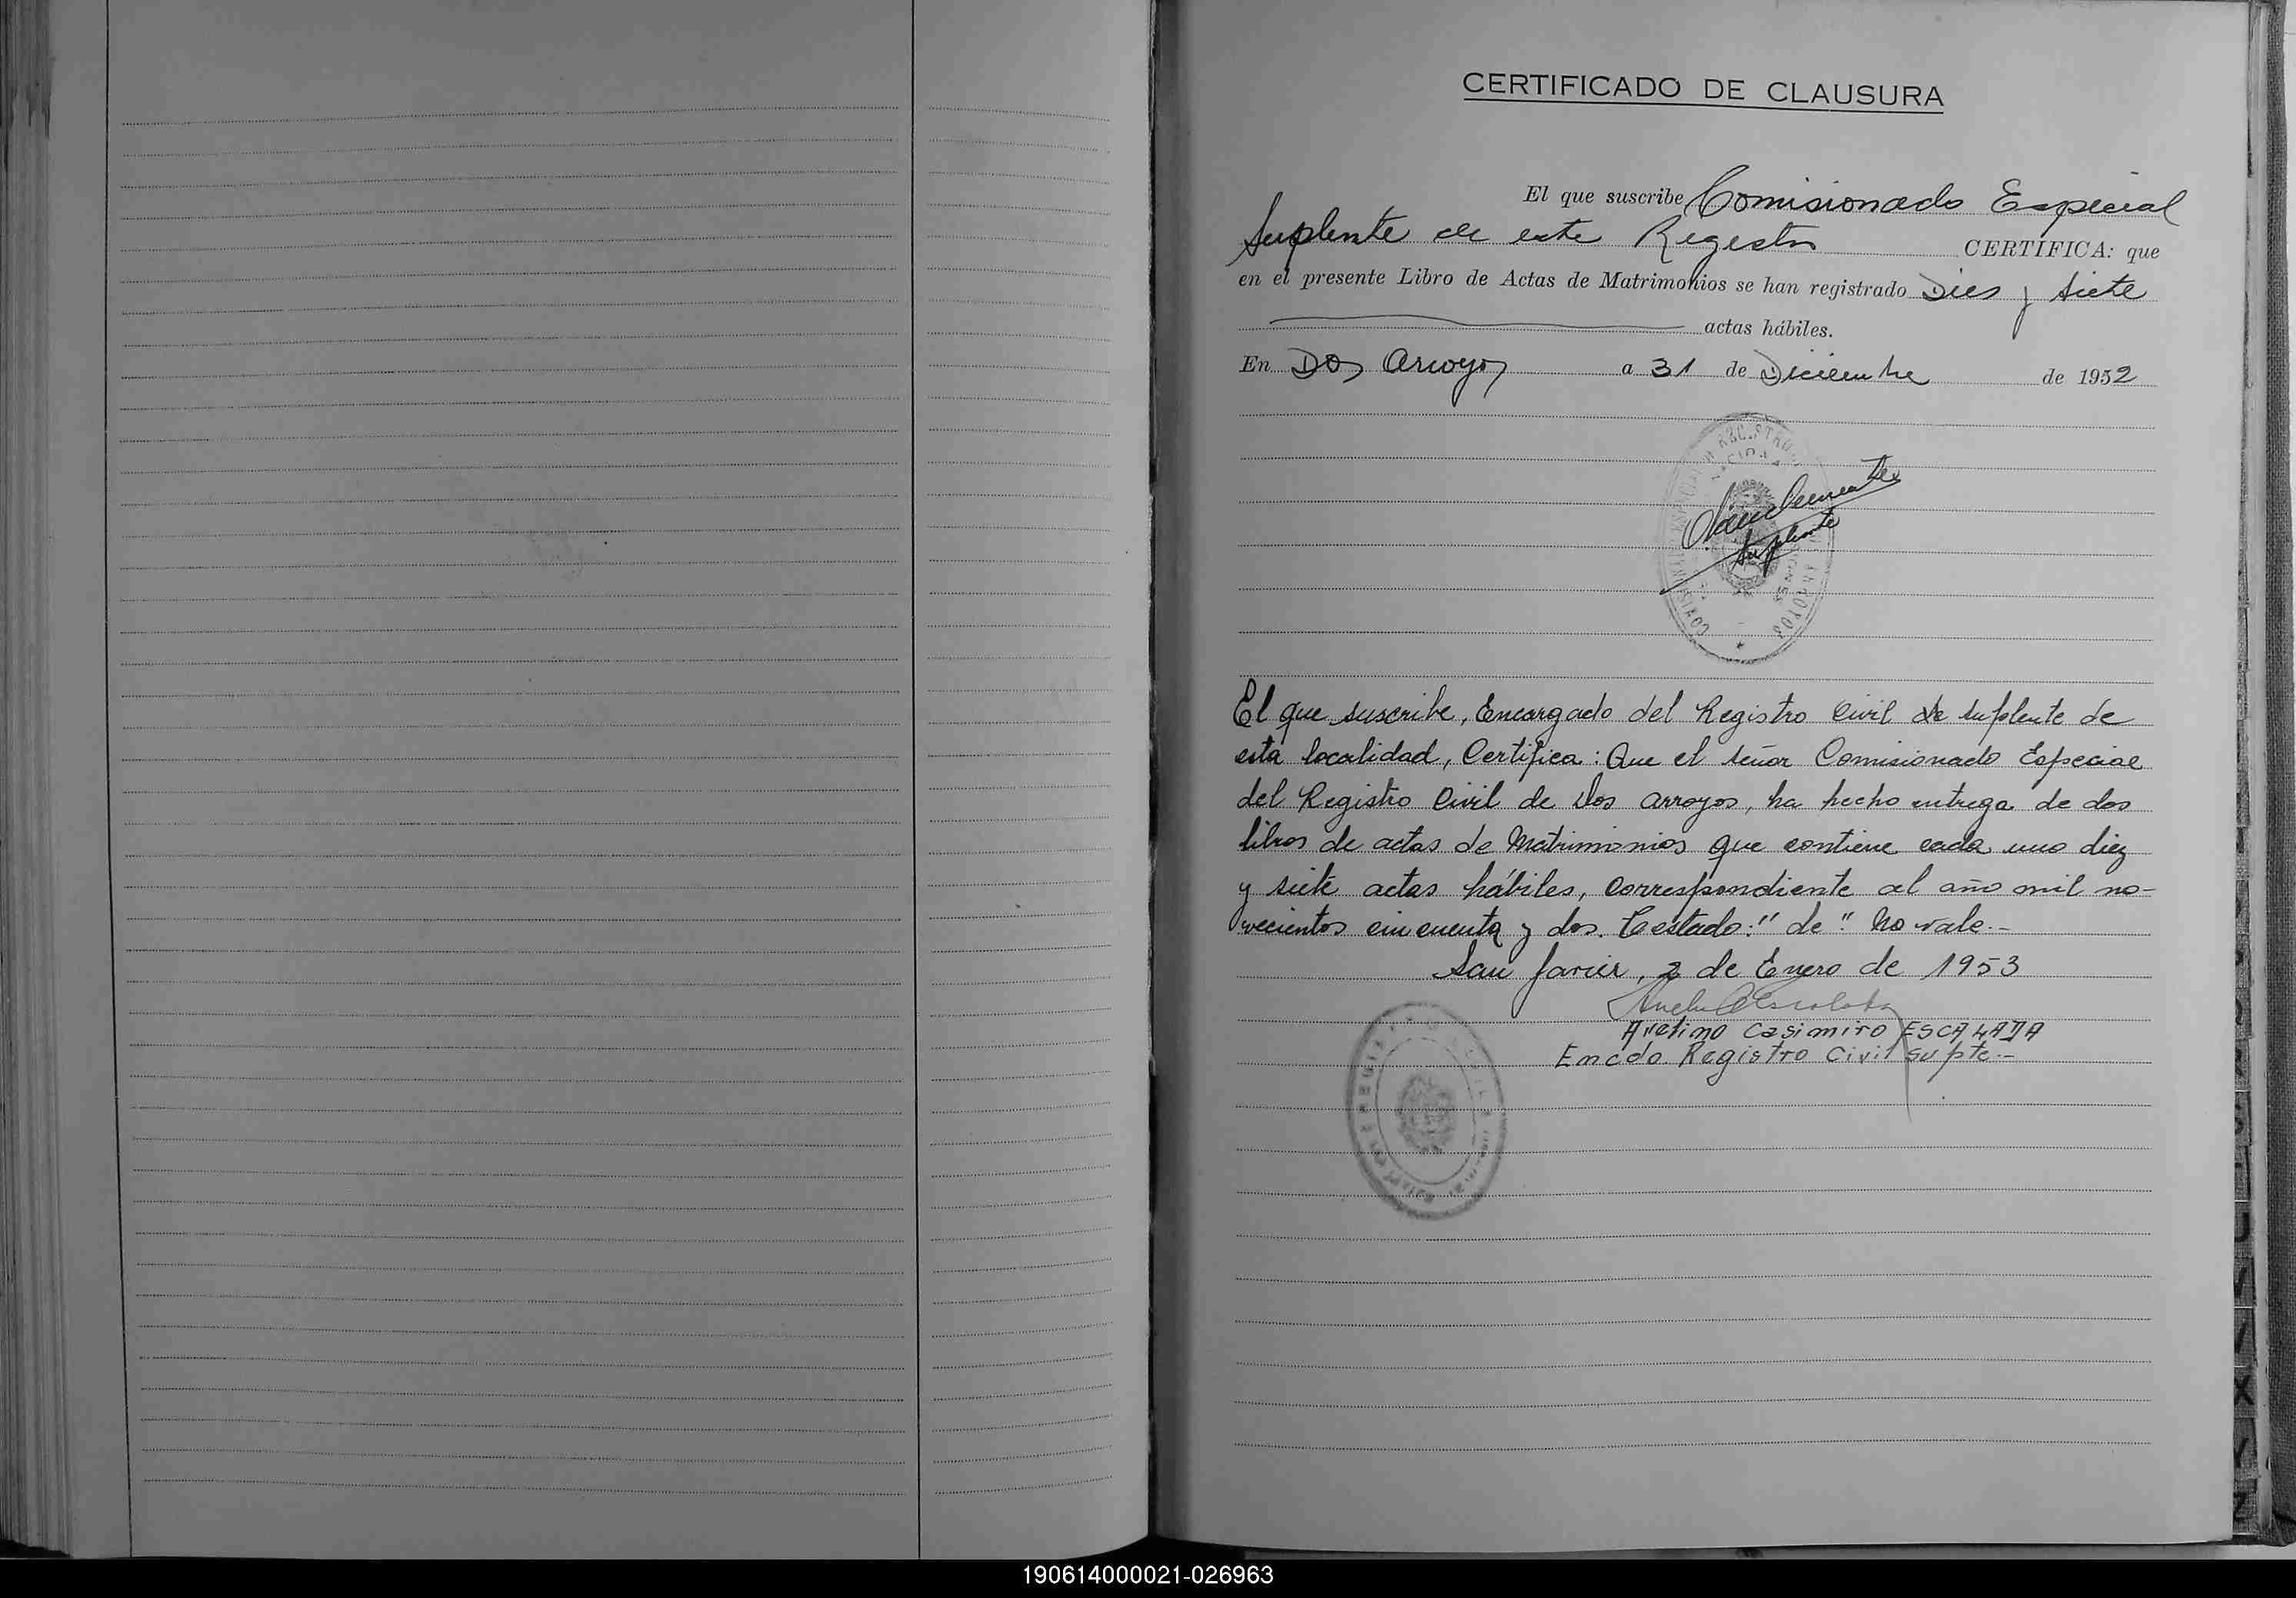 CERTIFICADO DE CLAUSURA
El que suscribe Comisionado Especial
Suplente de este Registro CERTIFICA: que
en el presente Libro de Actas de Matrimonios se han registrado Dies y siete
actas hábiles.
En Dos Arroyos a 31 de Diciembre de 1952
REGISTRO
ARROYOS
Suplente
El que suscribe, Encargado del Registro Civil de suplente de
esta localidad, Certifica: Que el señor Comisionado Especial
del Registro Civil de Dos Arroyos, ha hecho entrega de dos
libros de actas de Matrimonios que contiene cada uno diez
y siete actas hábiles, correspondiente al año mil no-
vecientos cincuenta y dos. Testado: "de" No vale.-
San Javier, 2 de Enero de 1953
Avelino Casimiro ESCALADA
Encdo Registro Civil supte.-
U
V
X
Y
Z
190614000021-026963